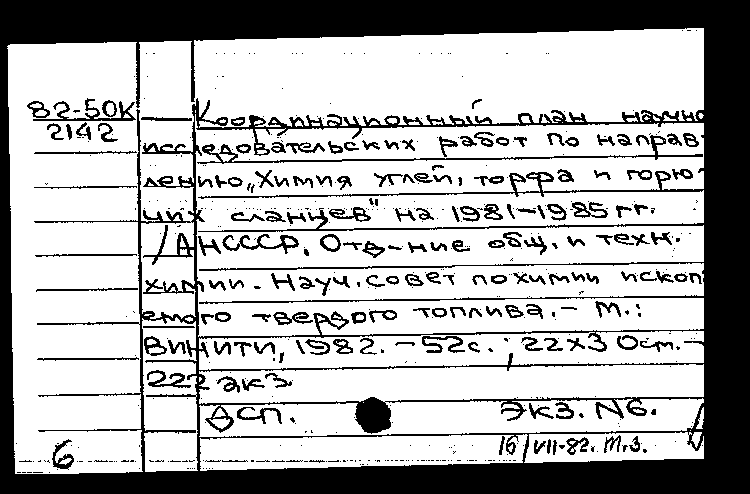 82-50К
2142
Координационный план научно
исследовательских работ по направ-
лению „Химия углей, торфа и горю-
чих сланцев" на 1981-1985 гг.
/АНСССР. Отд-ние общ. и техн.
химии. Науч. совет по химии ископ
емого твердого топлива. - М.:
ВИНИТИ, 1982. - 52с.; 22х30см. -
222 экз.
ДСП. ЭКЗ. N6.
6
16/VII-82. Т.З.